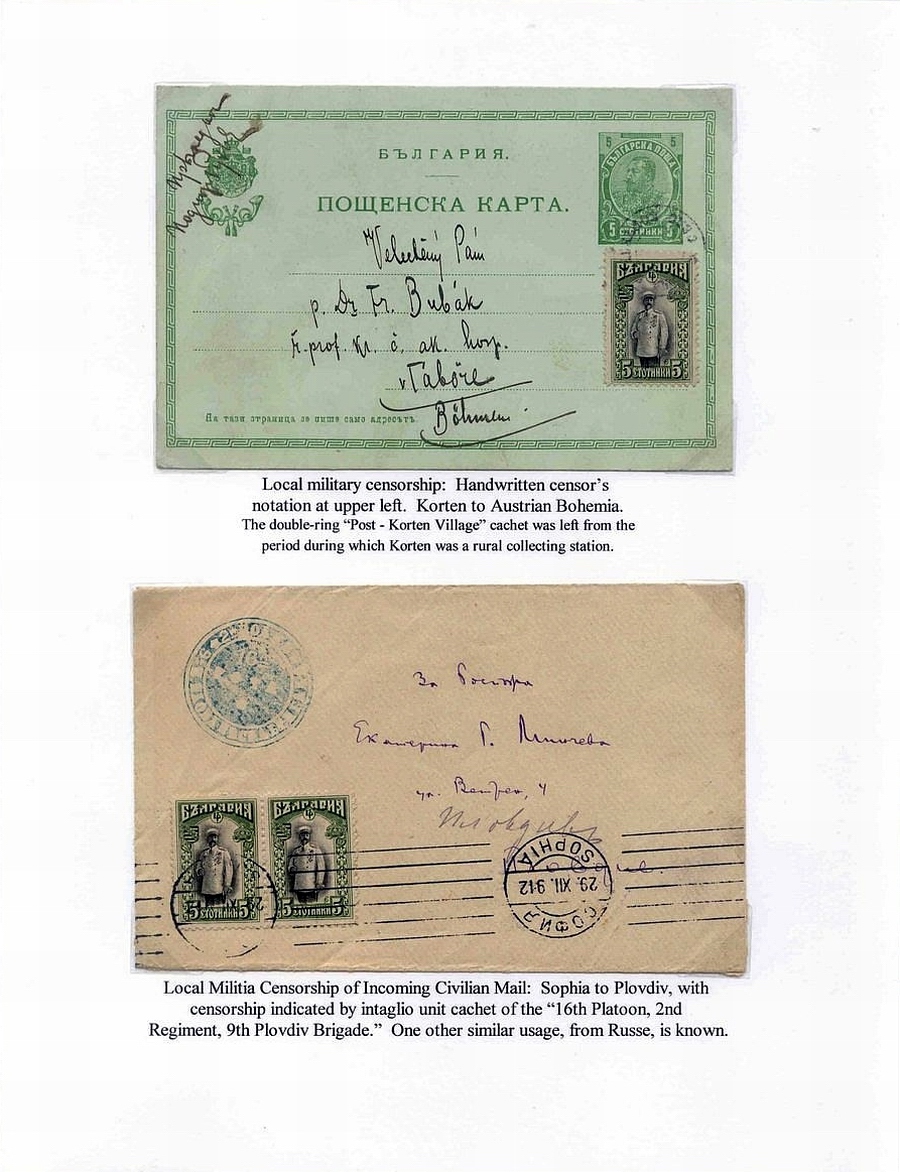 БЪЛГАРИЯ.
ПОЩЕНСКА КАРТА.
5 5
БЪЛГАРСКА ПОЩА
5 СТОТИНКИ 5
Velectěný Pán
p. Dr Fr. Bubák
v Táboře
Böhmen
На тази страница се пише само адресътъ.
БЪЛГАРИЯ
5 СТОТИНКИ 5
Local military censorship: Handwritten censor's
notation at upper left. Korten to Austrian Bohemia.
The double-ring “Post - Korten Village” cachet was left from the
period during which Korten was a rural collecting station.
За Госпожа
Екатерина Г. Минчева
ул. 4
Пловдив
БЪЛГАРИЯ БЪЛГАРИЯ
5 СТОТИНКИ 5 5 СТОТИНКИ 5
SOPHIA
29. XII. 912
СОФИЯ
Local Militia Censorship of Incoming Civilian Mail: Sophia to Plovdiv, with
censorship indicated by intaglio unit cachet of the “16th Platoon, 2nd
Regiment, 9th Plovdiv Brigade.” One other similar usage, from Russe, is known.